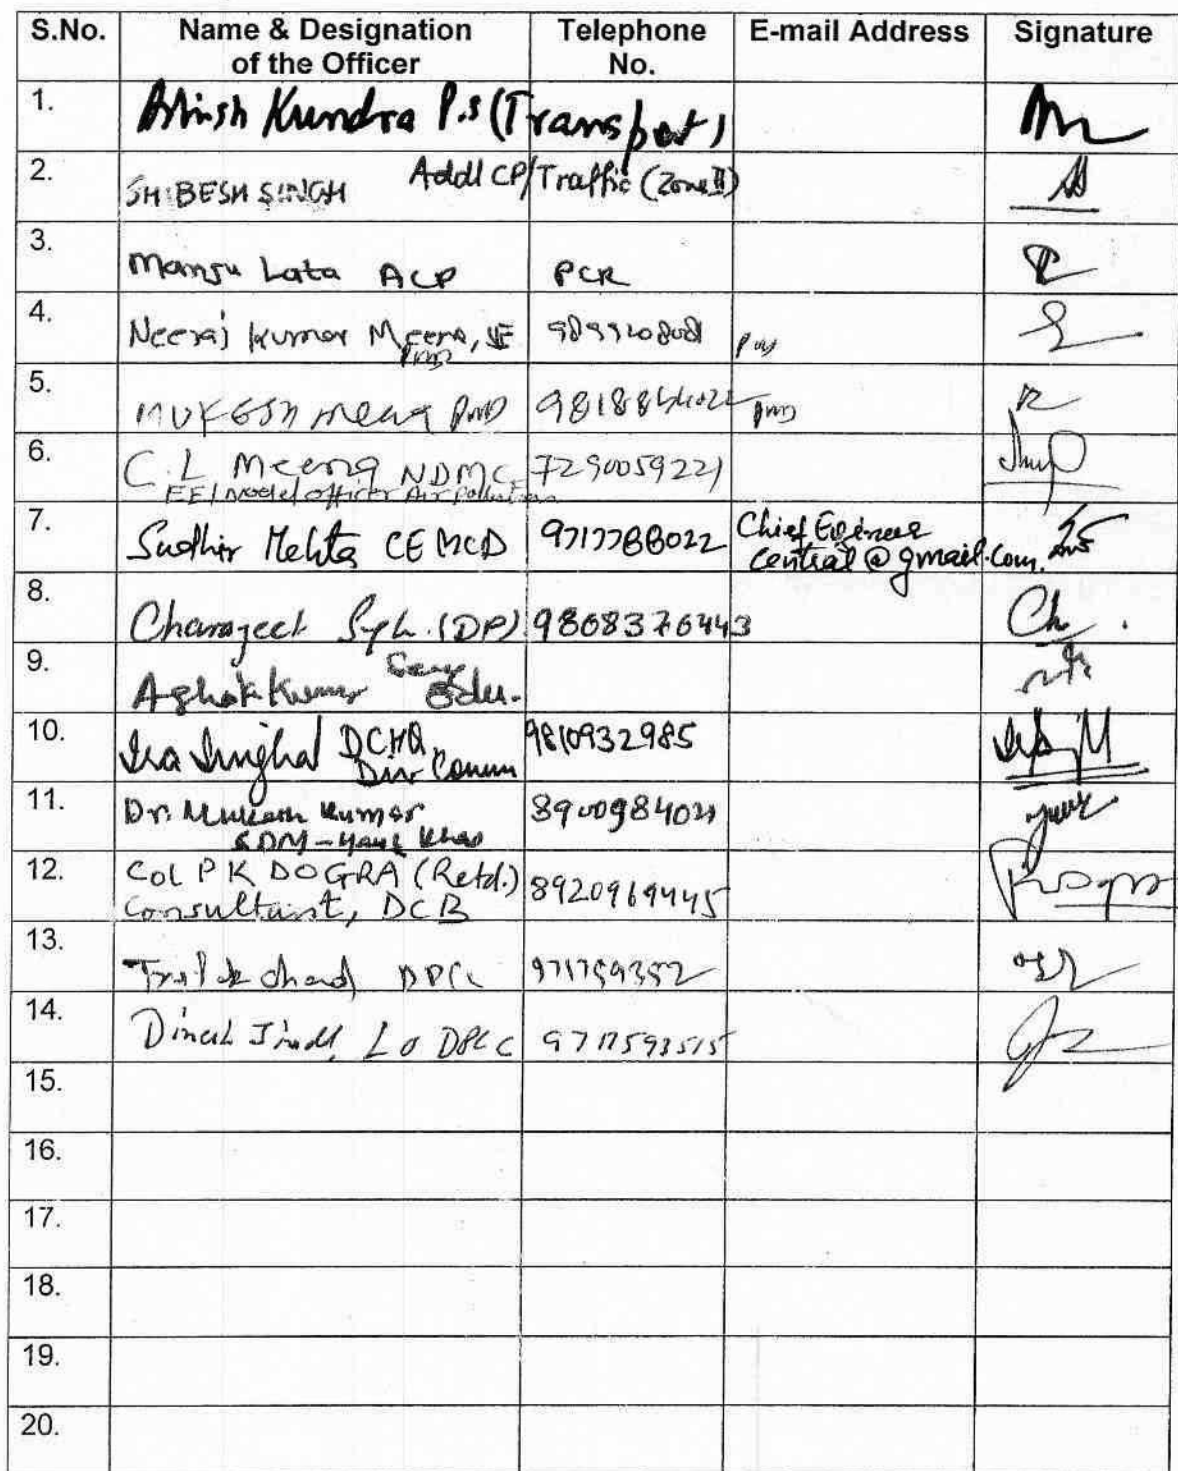 S.No. Name & Designation of the Officer Telephone No. E-mail Address Signature
1. Ashish Kundra P.S (Transport)
2. SHIBESH SINGH Addl CP/Traffic (Zone II)
3. Manju Lata ACP PCR
4. Neeraj Kumar Meena, SE PWD 9899208081 PWD
5. MUKESH Meena PWD PWD
6. C.L Meena NDMC 7290059221
EE/Nodel officer Air Pollution
7. Sudhir Mehta CE MCD 9717788022 Chief Engineer
central@gmail.com.
8. Charanjeet Singh. (DP) 9808376443
9. Ashok Kumar Edu.
10. Ira Singhal DCHQ, 9810932985
Dir Comm
11. Dr. Mukesh Kumar
SDM - Hauz Khas
12. Col P K DOGRA (Retd.) 8920969445
Consultant, DCB
13. Trilok chand DPCC 971759352
14. Dinesh Jindal, LO DPCC 9717593515
15.
16.
17.
18.
19.
20.